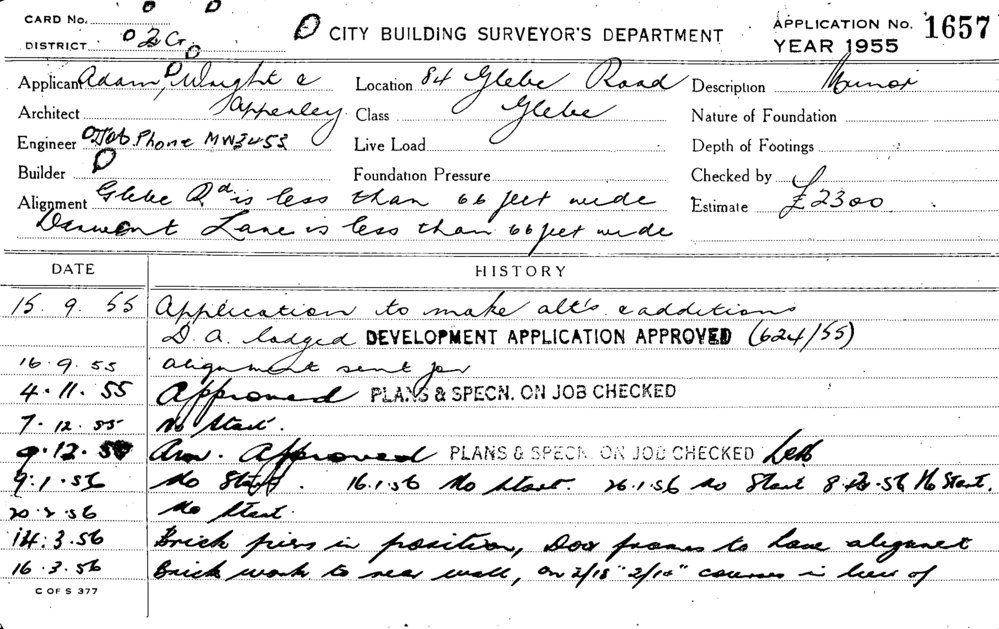 CARD No.
DISTRICT
CITY BUILDING SURVEYOR'S DEPARTMENT
APPLICATION No. 1657
YEAR 1955
Applicant Adam, Wright &
Location 84 Glebe Road
Description Minor
Architect Apperley
Class Glebe
Nature of Foundation
Engineer Job Phone MW3453
Live Load
Depth of Footings
Builder
Foundation Pressure
Checked by
Alignment Glebe Rd is less than 66 feet wide
Estimate £2300
Derwent Lane is less than 66 feet wide
DATE HISTORY
15. 9. 55 Application to make alt's & additions
D.A. lodged DEVELOPMENT APPLICATION APPROVED (624/55)
16.9.55 alignment sent for
4.11.55 Approved PLANS & SPECN. ON JOB CHECKED
7.12.55 No Start.
9.12.55 Approved PLANS & SPECN. ON JOB CHECKED
9.1.56 No Start. 16.1.56 No Start. 26.1.56 No Start 8.2.56 No Start.
20.2.56 No Start.
14.3.56 Brick piers in position, Door frames to lane
16.3.56 Brick work to rear wall, on courses in lieu of
C OF S 377